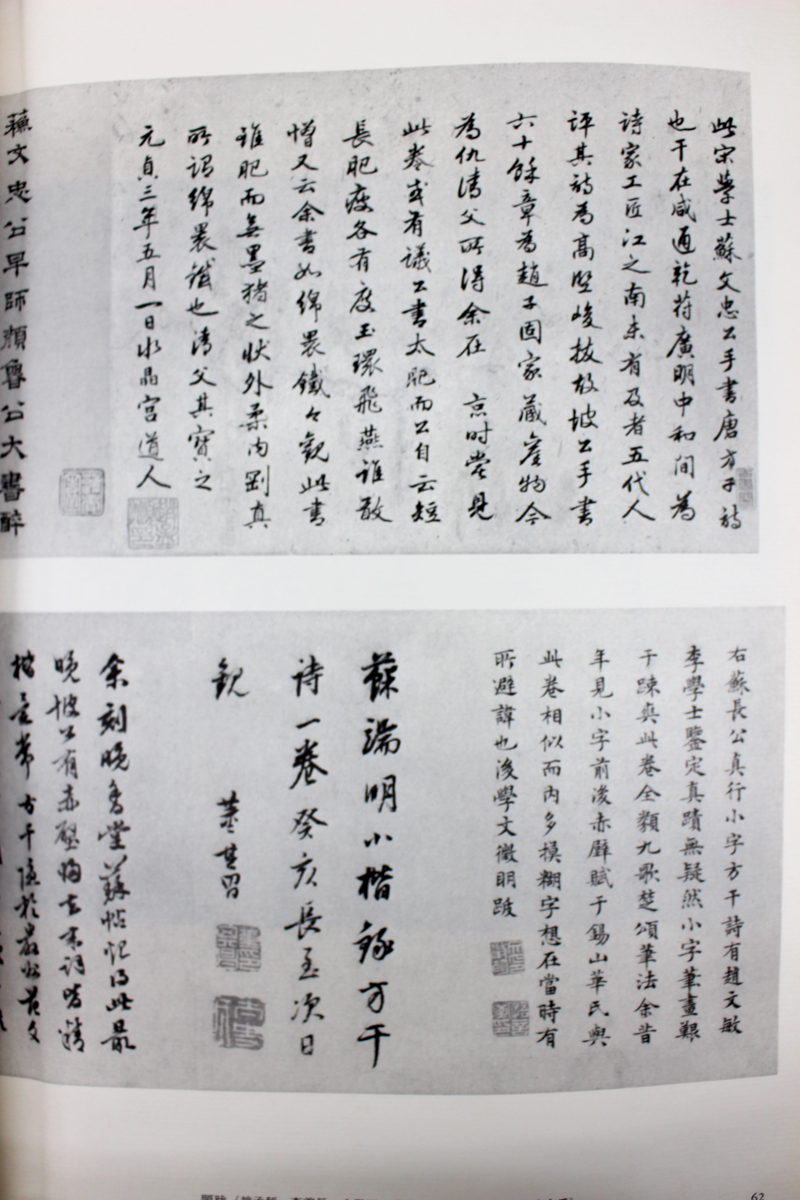 此宋學士蘇文忠公手書唐方干詩
也干在咸通乾符廣明中和間為
诗家工匠江之南未有及者五代人
評其詩為高堅峻拔故坡公手書
六十餘章為趙子固家藏舊物今
為仇清父所得余在 京时嘗見
此卷或有議公書太肥而公自云短
長肥瘦各有度玉環飛燕誰敢
憎又云余書如綿裹鐵今觀此書
雖肥而無墨猪之狀外柔内剛真
所謂綿裹鐵也清父其寶之
元貞三年五月一日水晶宮道人
蘇文忠公早師顏魯公大書醉
右蘇長公真行小字方干詩有趙文敏
李學士鑒定真蹟無疑然小字筆畫艱
于踈爽此卷全類九歌楚頌筆法余昔
年見小字前後赤壁賦于錫山華氏與
此卷相似而内多模糊字想在當時有
所避諱也後學文徵明跋
蘇端明小楷錄方干
诗一卷癸亥長至次日
觀 董其昌
余刻晚香堂蘇帖记得此最
晚坡公有赤壁
楷 方干
62